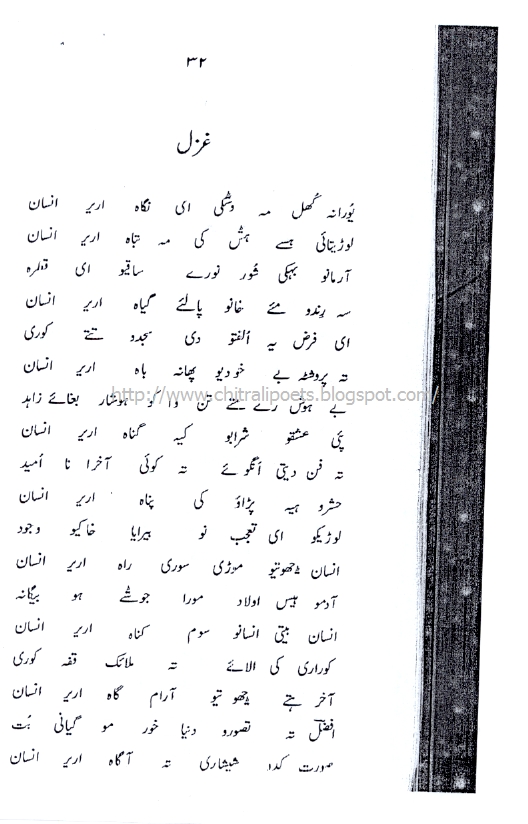 ۳۲
غزل
نورانہ گھل مہ دشکی ای نگاہ اریر انسان
لوڑیتائی ہسے ہش کی مہ تباہ اریر انسان
آرمانو بہکی شور نورے ساقیو ای قطرہ
سہ رندو مئے خانو پالئے گیاہ اریر انسان
ای فرض یہ اُلفتو دی سجدو تتے کوری
تہ پروشٹہ بے خودیو پھانہ باہ اریر انسان
بے ہوش رے متے تن وا کو ہوشار بغائے زاہد
پئی عشقو شرابو کیہ گناہ اریر انسان
تہ فن دیتی انگوئے تہ کوئی آخرا نا اُمید
حشرو ہیہ پڑاؤ کی پناہ اریر انسان
لوڑیکو ای تعجب نو بیرایا خاکیو وجود
انسان چھوتیو موڑی سوری راہ اریر انسان
آدمو ہیس اولاد مورا جوشے ہو بیگانہ
انسان بیتی انسانو سوم کناہ اریر انسان
کوراری کی الائے تہ ملائک قفہ کوری
آخر ہتے چھوتیو آرام گاہ اریر انسان
افضل تہ تصورو دنیا خور مو گیانی بُت
صورت کدہ شیشاری تہ آگاہ اریر انسان
http://www.chitralipoets.blogspot.com/